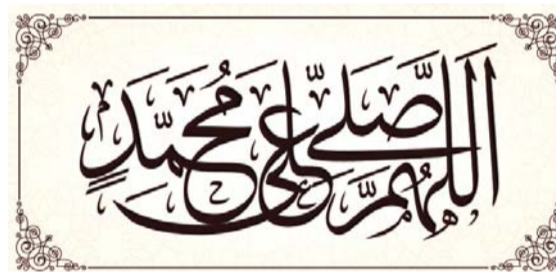 اَللّٰهُمَّ صَلِّ عَلٰی مُحَمَّدٍ